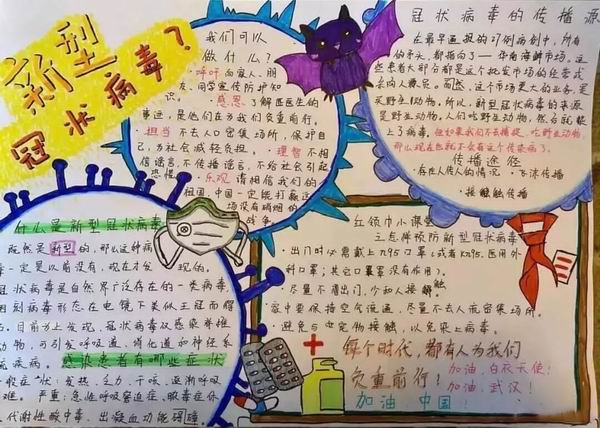 新型
冠状病毒?
我们可以
做什么?
·呼吁 向家人、朋
友、同学宣传防护知
识。
·感恩 了解医生的
事迹,是他们在为我们负重前行。
·担当 不去人口密集场所,保护自
己,为社会减轻负担。 ·理智 不相
信谣言,不传播谣言,不给社会引起
恐慌。 ·乐观 请相信我们的
祖国,中国一定能打赢这
场没有硝烟的
战争
冠状病毒的传播源
在最早通报的27例病例中,所有
的矛头,都指向了——华南海鲜市场,这
些患者大部分都是这个批发市场的经营或
采购人员。而然,这个市场最大的业务,是
买野生动物。所以,新型冠状病毒的来源
是野生动物。人们吃野生动物,然后就染
上了病毒。但如果我们不去捕捉、吃野生动物,
那么现在也就不会有这个传染病了。
传播途径
·存在人传人的情况 ·飞沫传播
·接触传播
什么是新型冠状病毒
既然是新型的,那么这种病
毒一定是以前没有,现在才发现的。
冠状病毒是自然界广泛存在的一类病毒,
因别病毒形态在电镜下类似王冠而得
名。目前为止发现,冠状病毒仅感染脊椎
动物,可引发呼吸道、消化道和神经系
统疾病。感染患者有哪些症状
一般症状:发热、乏力、干咳、逐渐呼吸
难。 严重:急性呼吸窘迫症、脓毒症休
代谢性酸中毒、出凝血功能障碍
红领巾小课堂
之怎样预防新型冠状病毒
·出门时必需戴上n95口罩(或者KN95、医用外
科口罩;其它口罩罩没有作用)。
·尽量不痛出门,少和人接触
·家中要保持空气流通,尽量不去人流密集场所。
避免与也宠物接触,以免染上病毒。
每个时代,都有人为我们
负重前行! 加油,白衣天使!
加油,武汉!
加油 中国!